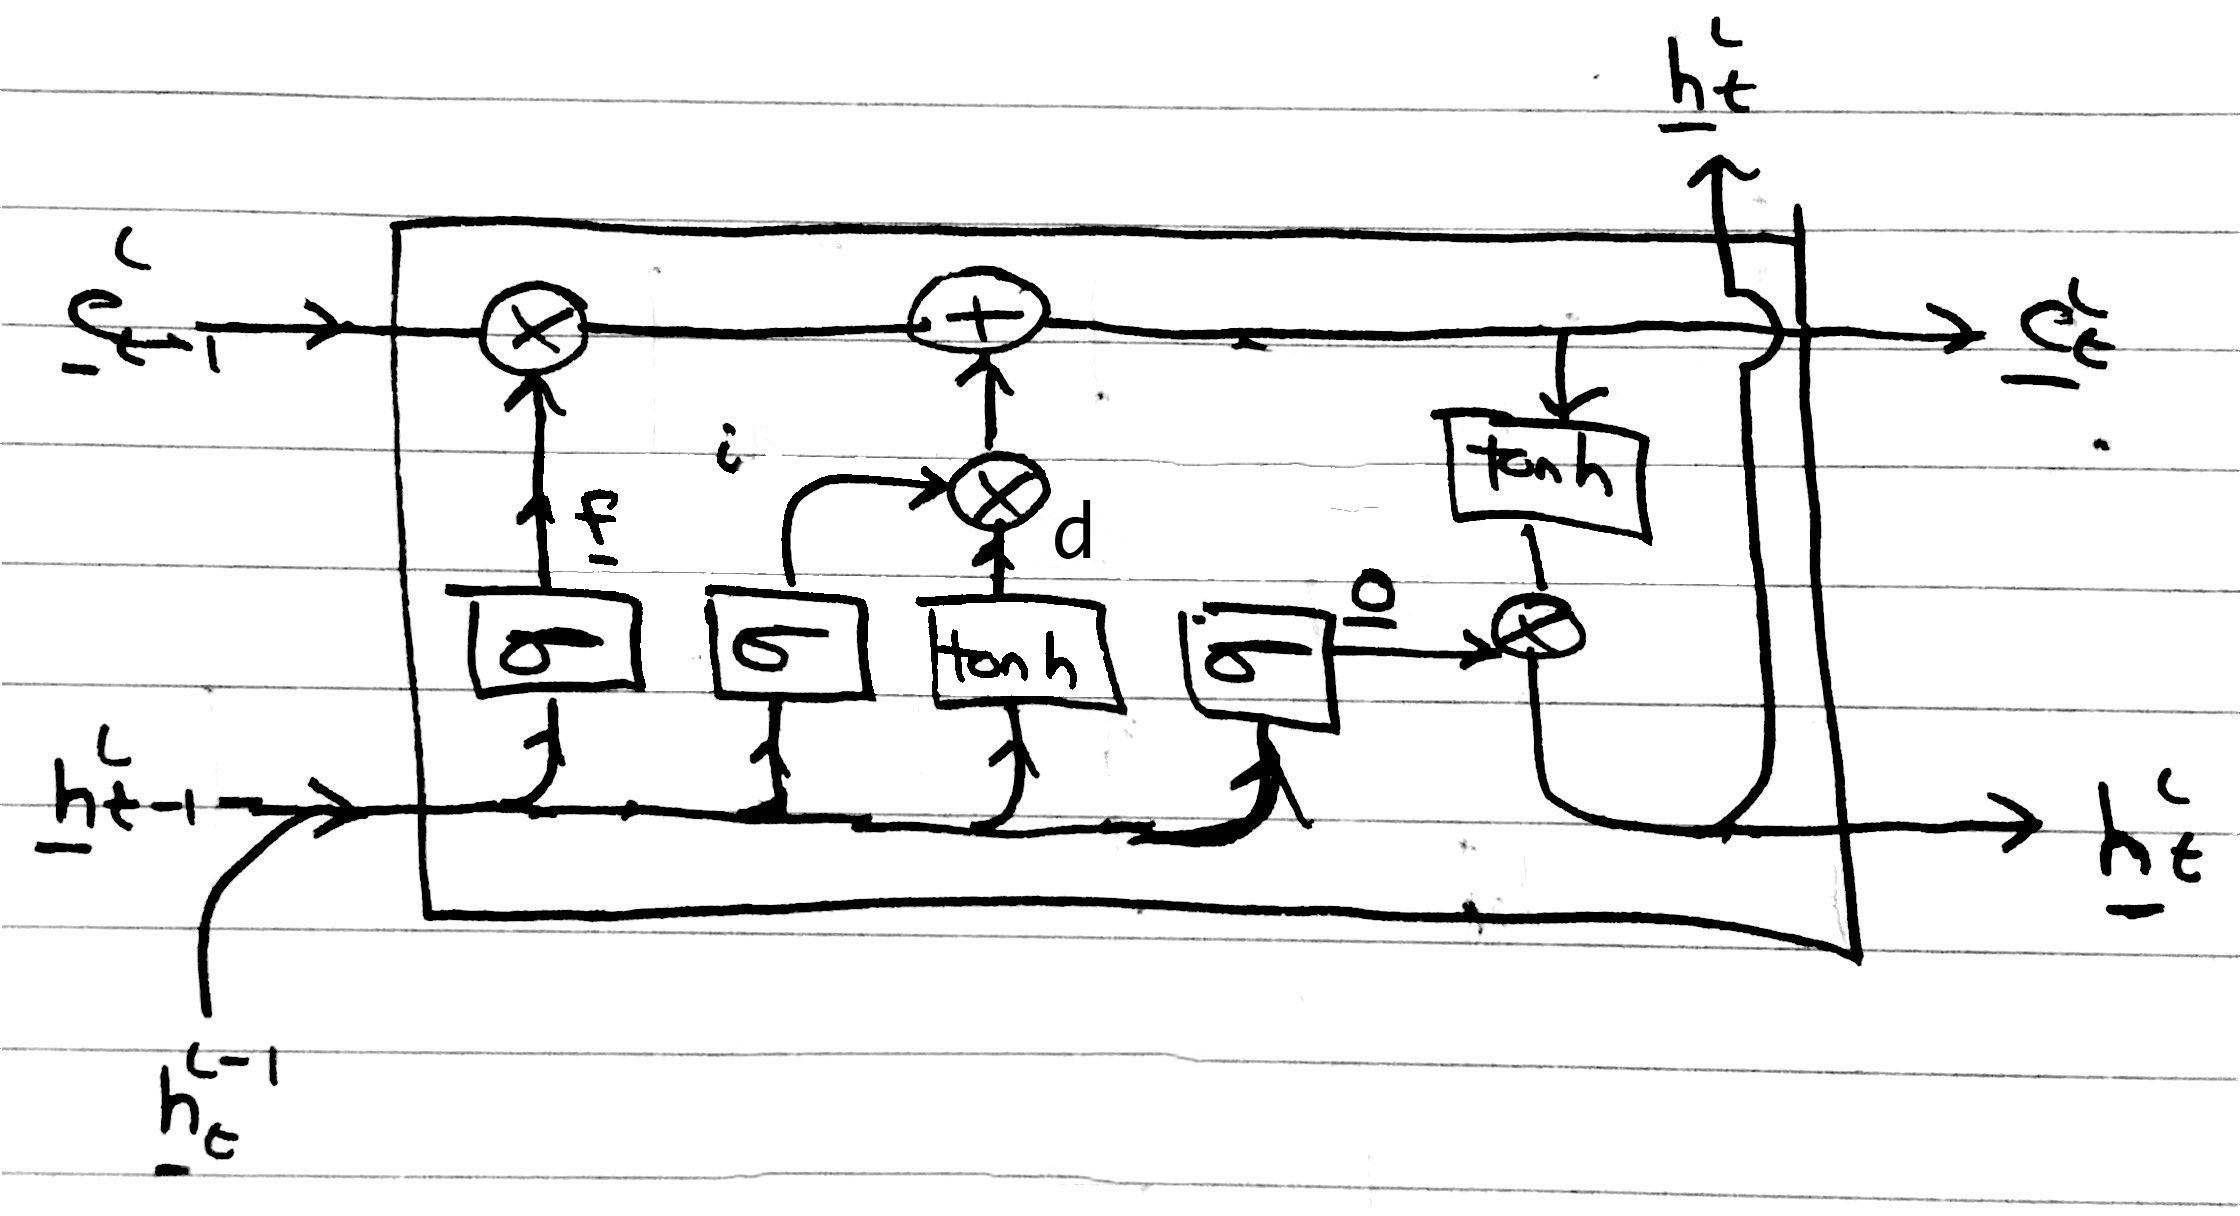 h_t^l
c_{t-1}^l
× + c_t^l
i tanh
f × d
o ×
σ σ tanh σ
h_{t-1}^l h_t^l
h_t^{l-1}